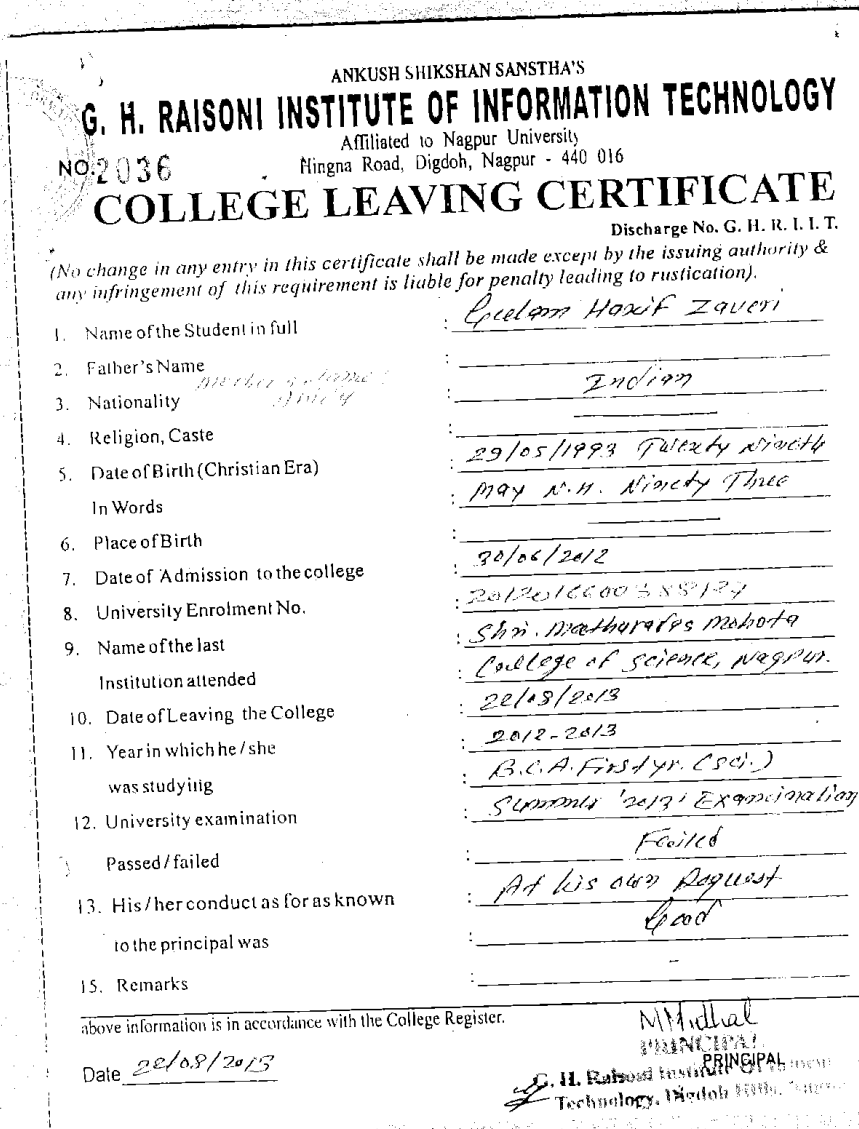 ANKUSH SHIKSHAN SANSTHA'S
G. H. RAISONI INSTITUTE OF INFORMATION TECHNOLOGY
Affiliated to Nagpur University
NO. 2036 Hingna Road, Digdoh, Nagpur - 440 016
COLLEGE LEAVING CERTIFICATE
Discharge No. G. H. R. I. I. T.
(No change in any entry in this certificate shall be made except by the issuing authority &
any infringement of this requirement is liable for penalty leading to rustication).
1. Name of the Student in full : Gulam Hanif Zaveri
2. Father's Name :
3. Nationality : Indian
4. Religion, Caste :
5. Date of Birth (Christian Era) : 29/05/1993 Twenty Nineth
In Words : May N.H. Ninety Three
6. Place of Birth :
7. Date of Admission to the college : 30/06/2012
8. University Enrolment No. :
9. Name of the last : Shri. Mathuradas Mohota
Institution attended : College of Science, Nagpur.
10. Date of Leaving the College : 22/08/2013
11. Year in which he / she : 2012-2013
was studying : B.C.A. First yr. (Sci.)
12. University examination : Summer '2013' Examination
Passed / failed : Failed
13. His / her conduct as for as known : At his own Request
to the principal was : Good
15. Remarks : -
above information is in accordance with the College Register.
PRINCIPAL
PRINCIPAL
Date 22/08/2013
G. H. Raisoni Institute Of
Technology, Digdoh Hills,